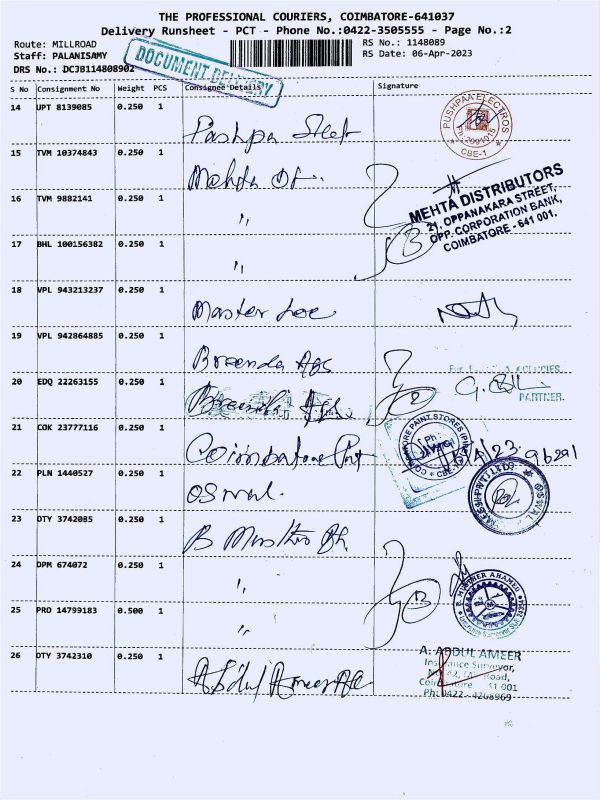 THE PROFESSIONAL COURIERS, COIMBATORE-641037
Delivery Runsheet - PCT - Phone No.:0422-3505555 - Page No.:2
Route: MILLROAD RS No.: 1148089
Staff: PALANISAMY RS Date: 06-Apr-2023
DRS No.: DCJB114808902
DOCUMENT DELIVERY
S No Consignment No Weight PCS Consignee Details Signature
14 UPT 8139085 0.250 1
Pushpa
PUSHPAA ELECTROS
CBE-1
15 TVM 10374843 0.250 1
Mehta
MEHTA DISTRIBUTORS
21, OPPANAKARA STREET,
OPP. CORPORATION BANK,
COIMBATORE - 641 001.
16 TVM 9882141 0.250 1
"
17 BHL 100156382 0.250 1
"
18 VPL 943213237 0.250 1
Master
19 VPL 942864885 0.250 1
Ags
AGENCIES
PARTNER.
20 EDQ 22263155 0.250 1
21 COK 23777116 0.250 1
Coimbatore Pnt
PAINT STORES
22 PLN 1440527 0.250 1
Oswal.
OSWAL
23 DTY 3742085 0.250 1
B
24 DPM 674072 0.250 1
"
25 PRO 14799183 0.500 1
"
26 DTY 3742310 0.250 1
Abdul Ameer
A. ABDUL AMEER
Insurance Surveyor,
Road,
Coimbatore